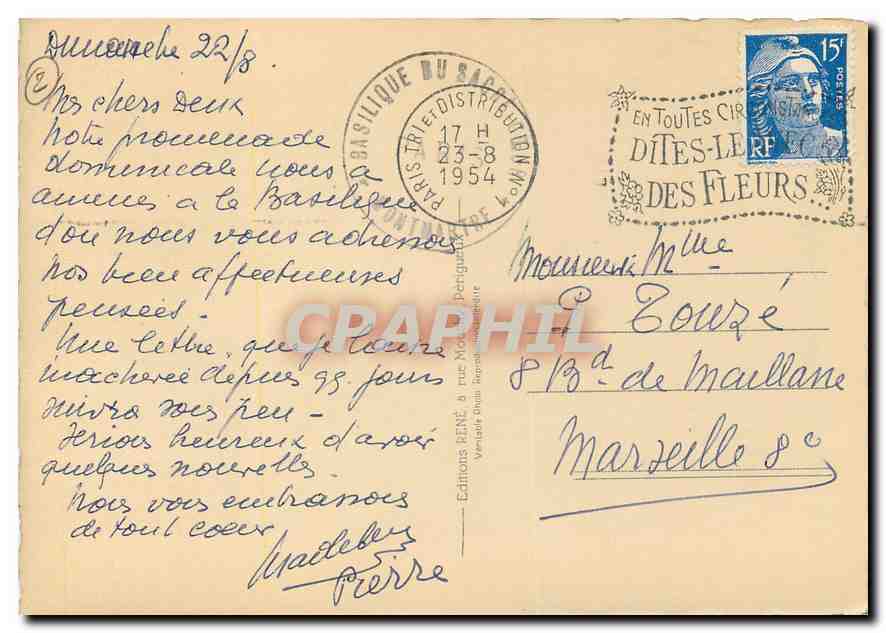 Dimanche 22/8.
2
Mes chers Deux
Notre promenade
dominicale nous a
amenés a la Basilique
d'où nous vous adressons
nos bien affectueuses
pensées.
Une lettre, que je laisse
inachevée depuis qq. jours
suivra sous peu -
Serions heureux d'avoir
quelques nouvelles.
Nous vous embrassons
de tout coeur
Pierre
BASILIQUE DU SACR
MONTMARTRE
PARIS TRI et DISTRIBUTION No
17 H
23-8
1954
EN TOUTES CIR
DITES-LE
DES FLEURS
15F
POSTES
RF
Monsieur & Mme
Touzé
8 Bd. de Maillane
Marseille 8e
Editions RENÉ 8 rue Périgueux
Véritable Photo Reproduction interdite
CPAPHIL